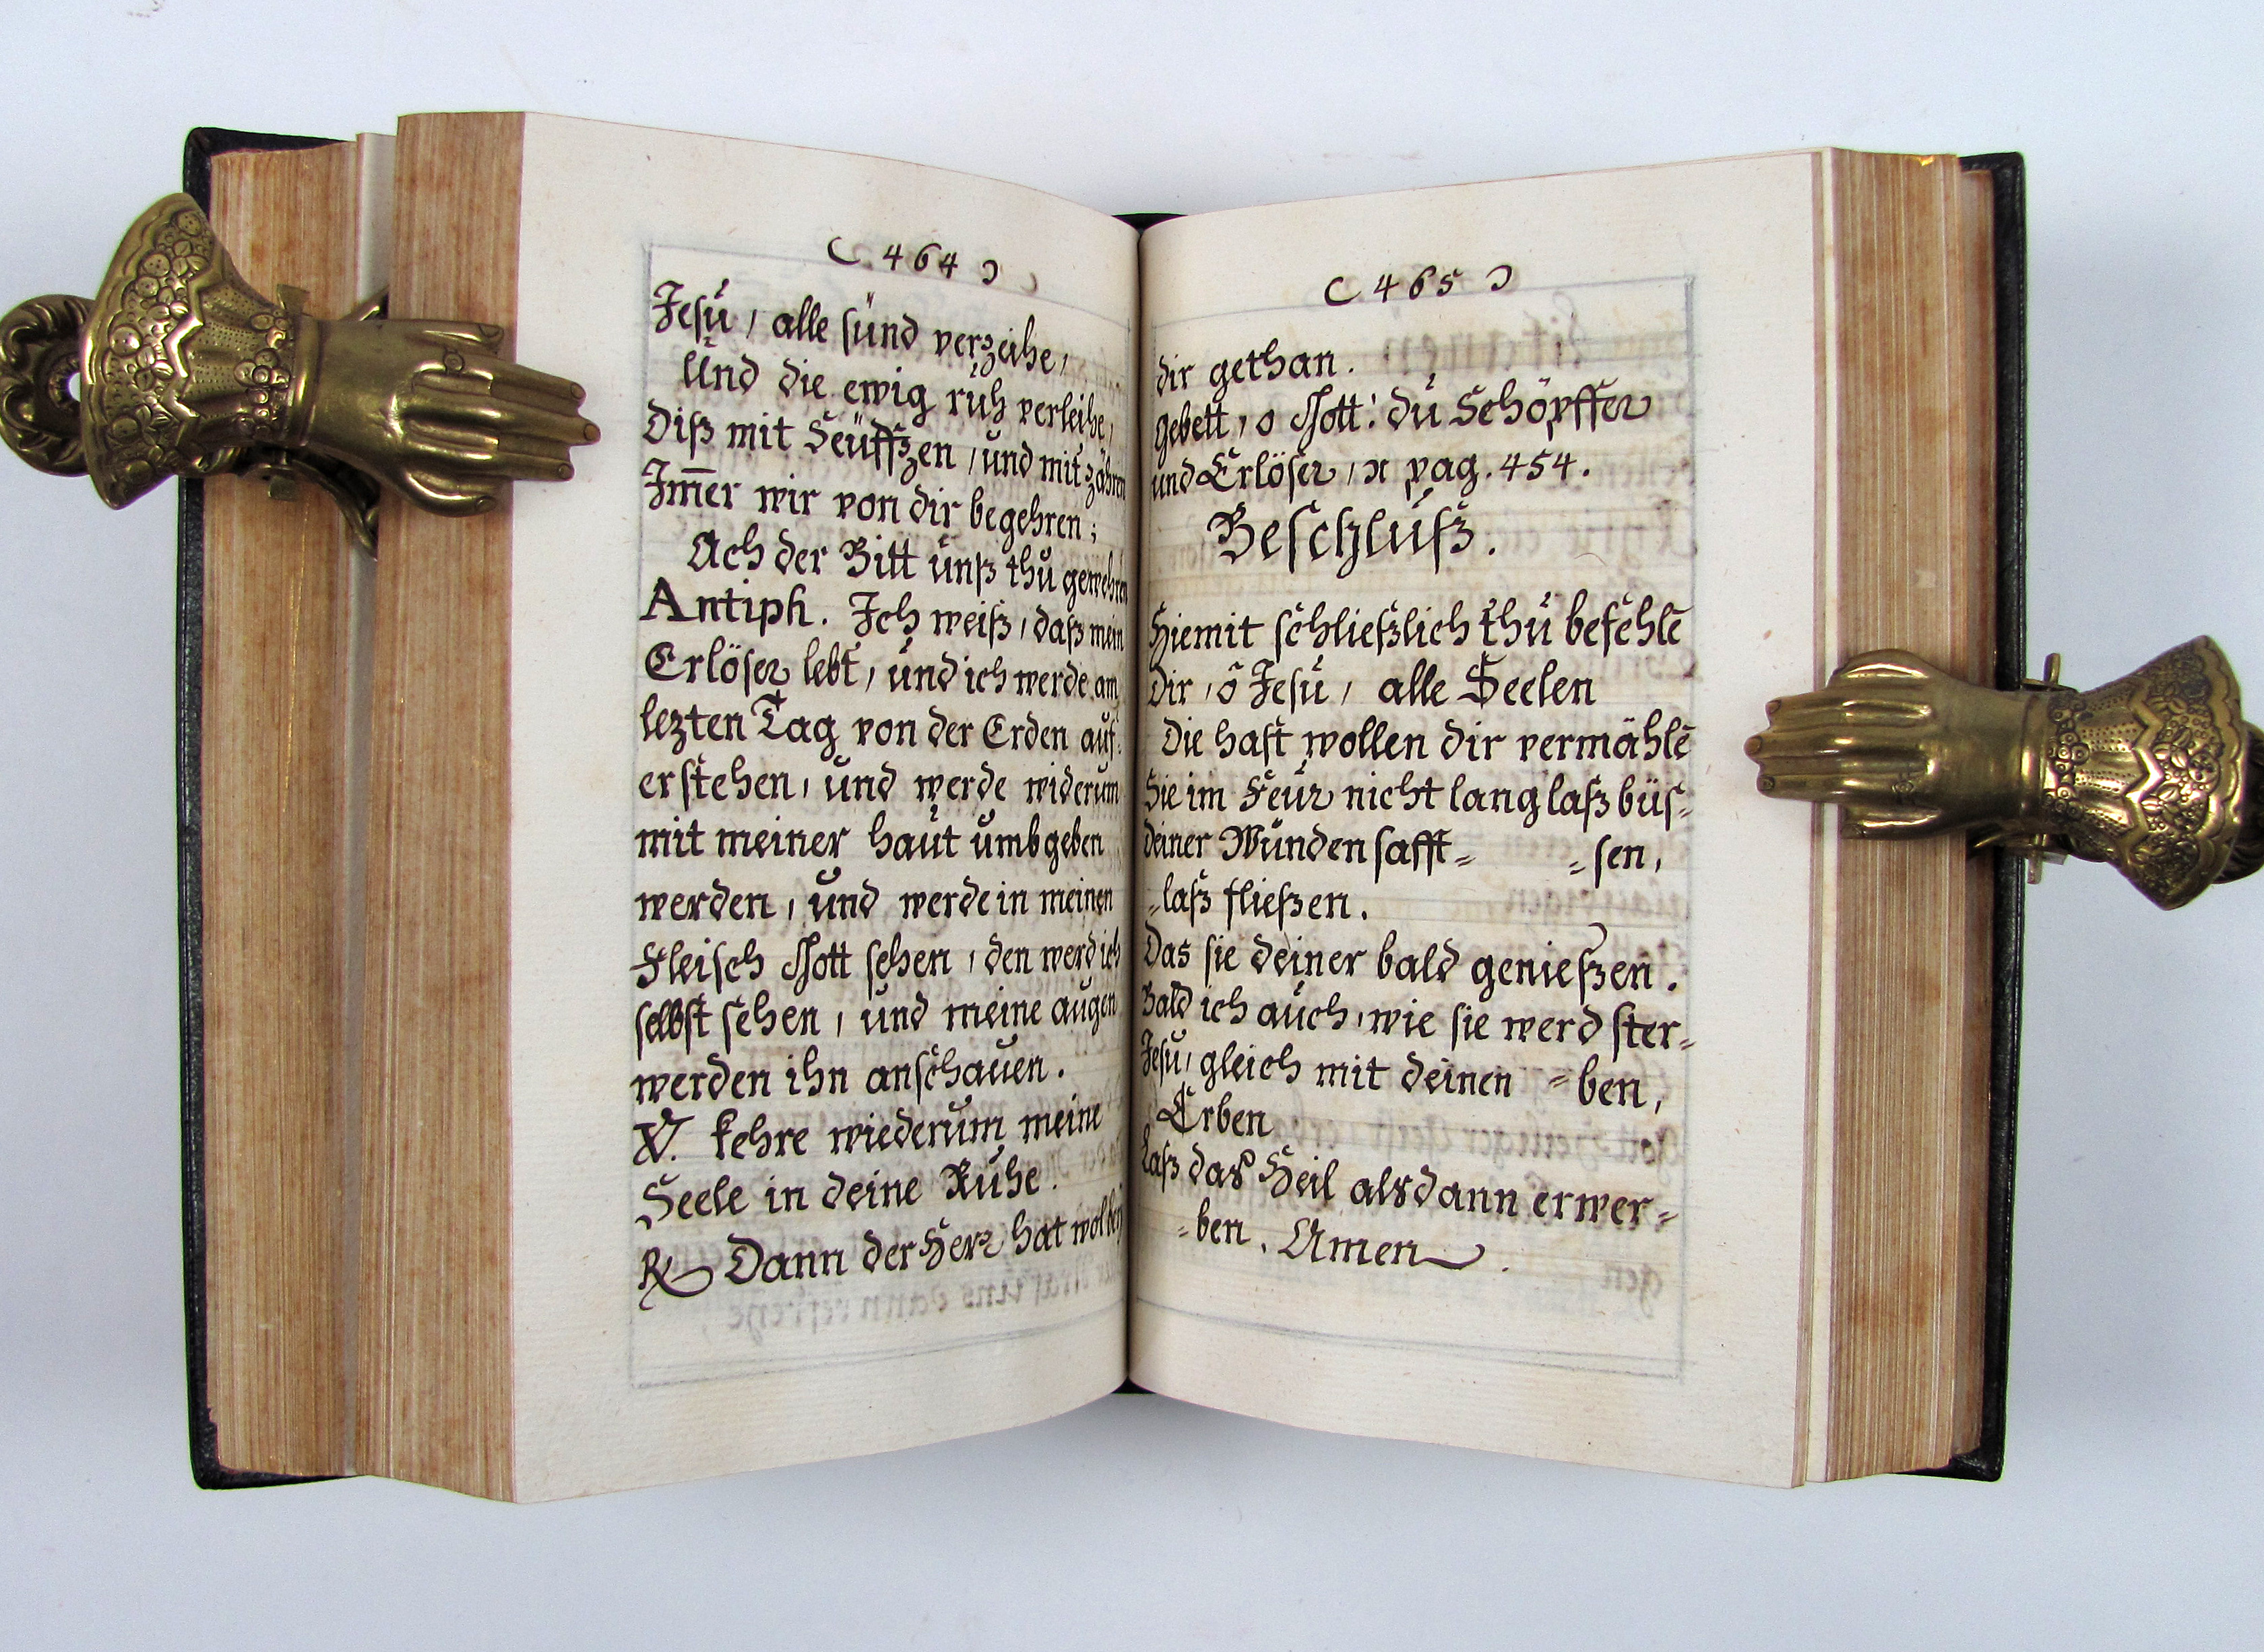 ( 464 )
Jesu / alle sünd verzeihe /
Und die ewig ruh verleihe /
Diß mit Seüffzen / und mit zähren
Im̄er wir von dir begehren ;
Ach der Bitt unß thu gewehren
Antiph. Ich weiß / daß mein
Erlöser lebt / und ich werde am
lezten Tag von der Erden auf:
erstehen / und werde widerum
mit meiner haut umbgeben
werden / und werde in meinen
Fleisch Gott sehen / den werd ich
selbst sehen / und meine augen
werden ihn anschauen .
V. kehre wiederum meine
Seele in deine Ruhe .
R Dann der Herr hat
( 465 )
dir gethan .
Gebett / o Gott : du Schöpffer
und Erlöser / pag . 454 .
Beschluß .
Hiemit schließlich thu befehlē
Dir / ô Jesu / alle Seelen
Die hast wollen dir vermählē
Sie im Feur nicht lang laß büs=
deiner Wunden safft= =sen ,
=laß fließen .
Das sie deiner bald genießen .
Bald ich auch / wie sie werd ster=
Jesu / gleich mit deinen =ben ,
Erben
Laß das Heil alsdann erwer=
=ben . Amen .